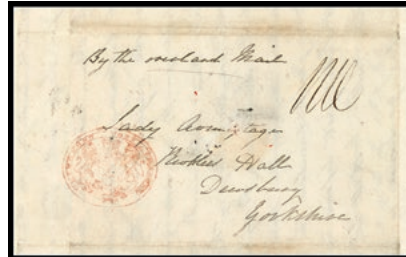 By the overland Mail
Lady Armytage
Kirklees Hall
Dewsbury
Yorkshire